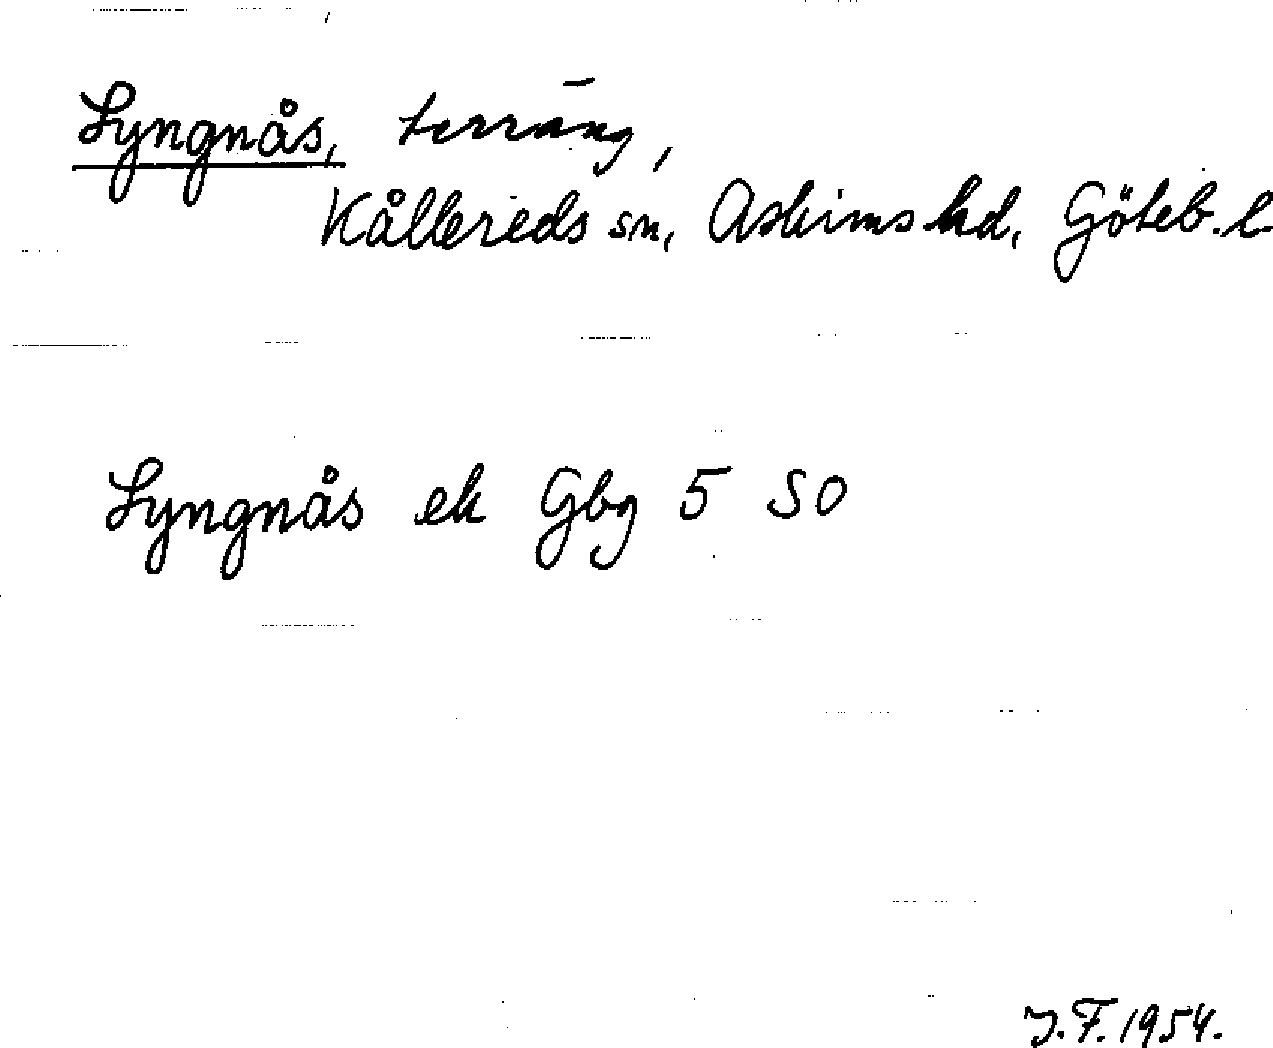 Lyngnås, terräng,
Kållereds sn, Askims hd, Göteb. l.
Lyngnås ek Gbg 5 SO
J.F. 1954.